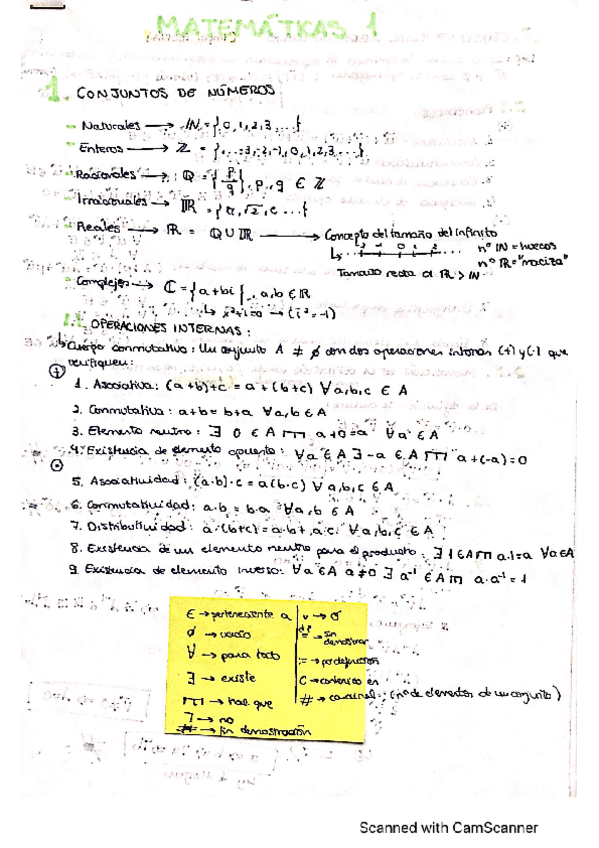 MATEMÁTICAS 1
1. CONJUNTOS DE NÚMEROS
- Naturales → ℕ = {0,1,2,3,...}
- Enteros → ℤ = {...-3,-2,-1,0,1,2,3,...}
- Racionales → ℚ = {p/q}, p, q ∈ ℤ
- Irracionales → 𝕀ℝ = {π, √2, e ...}
- Reales → ℝ = ℚ ∪ 𝕀ℝ → Concepto del tamaño del infinito
-2 -1 0 1 2 nº ℕ = huecos
nº ℝ = "maciza"
Tamaño recta al ℝ > ℕ
- Complejos → ℂ = {a+bi}, a,b ∈ ℝ
↳ i²+1=0 → (i²=-1)
1.1. OPERACIONES INTERNAS:
↳ Cuerpo conmutativo: Un conjunto A ≠ ∅ con dos operaciones internas (+) y (·) que
verifiquen:
⊕
1. Asociativa: (a+b)+c = a+(b+c) ∀a,b,c ∈ A
2. Conmutativa: a+b = b+a ∀a,b ∈ A
3. Elemento neutro: ∃ 0 ∈ A ⊓⊓ a+0=a ∀a ∈ A
4. Existencia de elemento opuesto: ∀a ∈ A ∃ -a ∈ A ⊓⊓ a+(-a)=0
⊙
5. Asociatividad: (a·b)·c = a(b·c) ∀a,b,c ∈ A
6. Conmutatividad: a·b = b·a ∀a,b ∈ A
7. Distributividad: a·(b+c) = a·b+, a·c; ∀a,b,c ∈ A
8. Existencia de un elemento neutro para el producto: ∃ 1 ∈ A ⊓⊓ a·1=a ∀a∈A
9. Existencia de elemento inverso: ∀a ∈ A a≠0 ∃ a⁻¹ ∈ A ⊓⊓ a·a⁻¹ = 1
∈ → perteneciente a
∅ → vacío
∀ → para todo
∃ → existe
⊓⊓ → tal que
¬ → no
# → sin demostración
∨ → o
= → sin
demostrar
:= → por definición
⊂ → contenido en
# → cardinal: (nº de elementos de un conjunto)
Scanned with CamScanner